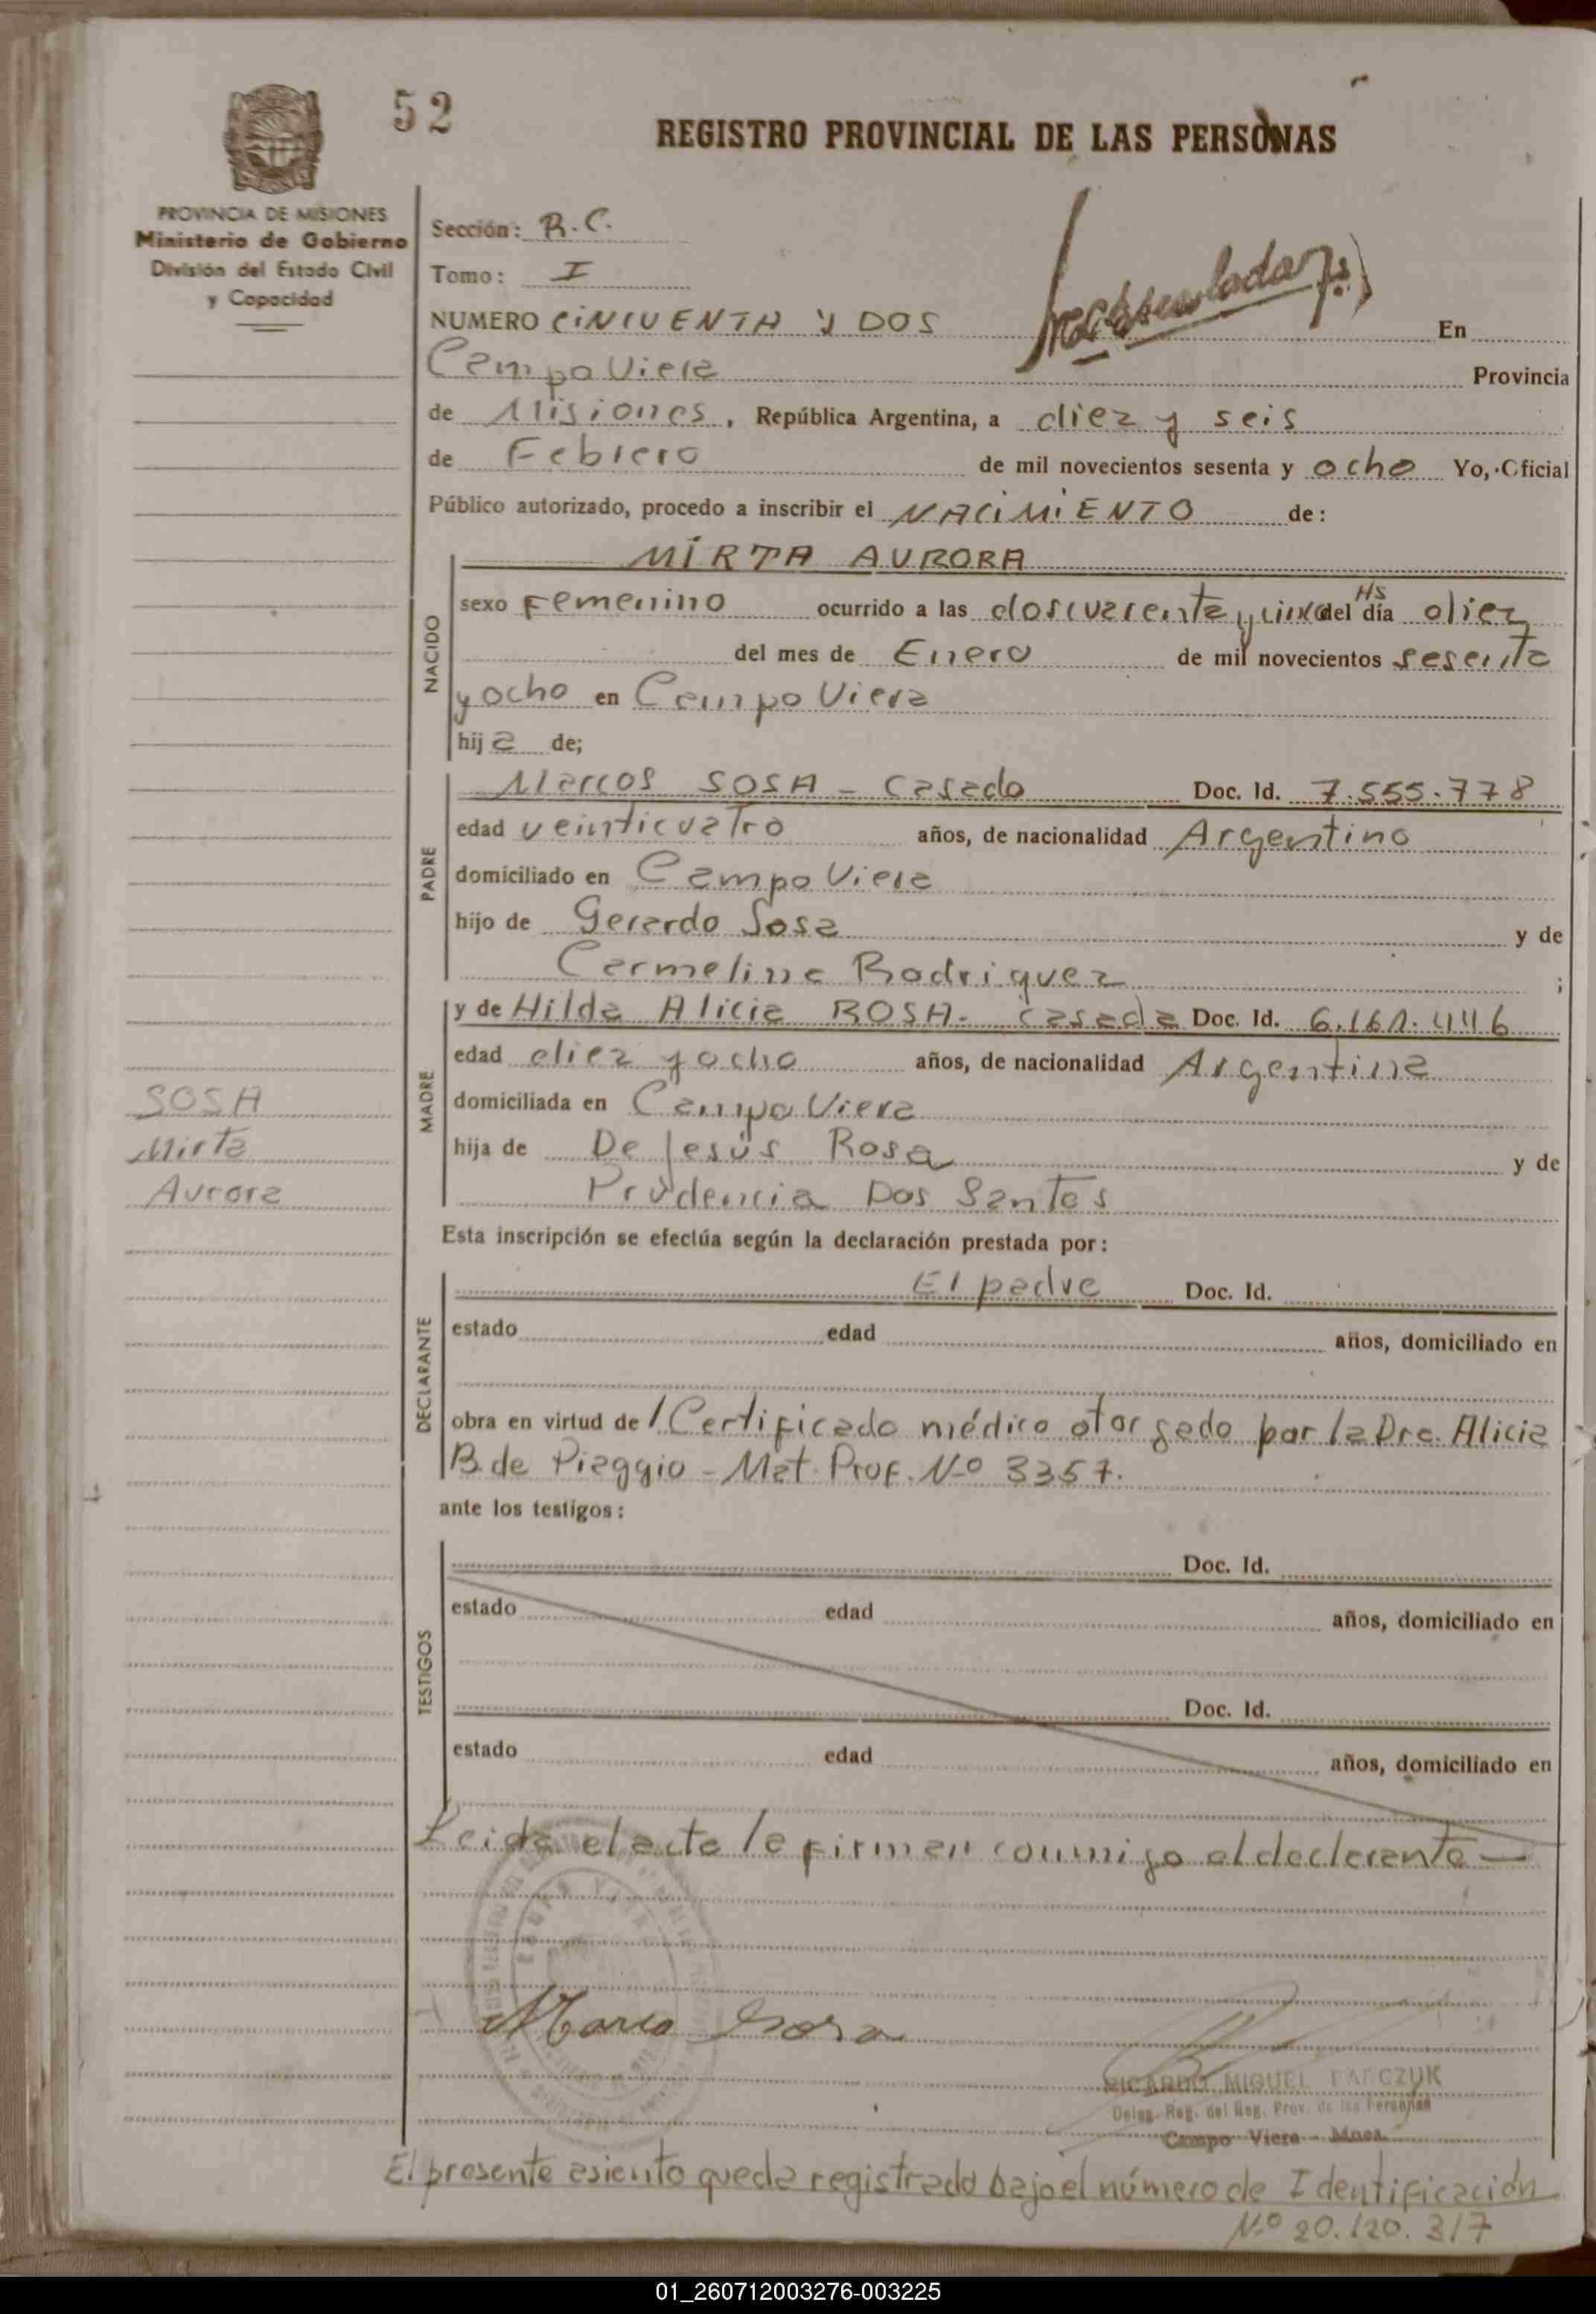 52
REGISTRO PROVINCIAL DE LAS PERSONAS
PROVINCIA DE MISIONES
Ministerio de Gobierno
División del Estado Civil
y Capacidad
Sección: R.C.
Tomo: I
NUMERO CINCUENTA Y DOS En
Campo Viera Provincia
de Misiones, República Argentina, a diez y seis
de Febrero de mil novecientos sesenta y ocho Yo, Oficial
Público autorizado, procedo a inscribir el NACIMIENTO de:
MIRTA AURORA
NACIDO
sexo Femenino ocurrido a las dos cuarenta y cinco Hs del día diez
del mes de Enero de mil novecientos sesenta
y ocho en Campo Viera
hija de;
PADRE
Marcos SOSA - Casado Doc. Id. 7.555.778
edad veinticuatro años, de nacionalidad Argentino
domiciliado en Campo Viera
hijo de Gerardo Sosa y de
Carmelina Rodriguez ;
MADRE
y de Hilda Alicia ROSA- Casada Doc. Id. 6.161.446
edad diez y ocho años, de nacionalidad Argentina
domiciliada en Campo Viera
hija de De Jesús Rosa y de
Prudencia Dos Santos
SOSA
Mirta
Aurora
Esta inscripción se efectúa según la declaración prestada por:
DECLARANTE
El padre Doc. Id.
estado edad años, domiciliado en
obra en virtud de / Certificado médico otorgado por la Dra. Alicia
B. de Piaggio - Mat. Prof. Nº 3357.
ante los testigos:
TESTIGOS
Doc. Id.
estado edad años, domiciliado en
Doc. Id.
estado edad años, domiciliado en
Leida el acta la firman conmigo el declarante —
Marco Sosa
RICARDO MIGUEL
Deleg. Reg. del Reg. Prov. de las Personas
Campo Viera - Mnes.
El presente asiento queda registrado bajo el número de Identificación
Nº 20.120.317
01_260712003276-003225